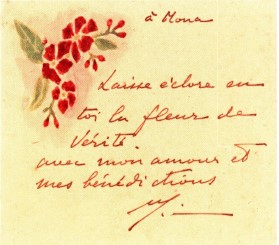 à Mona
Laisse éclore en
toi la fleur de
Vérité.
avec mon amour et
mes bénédictions
M.